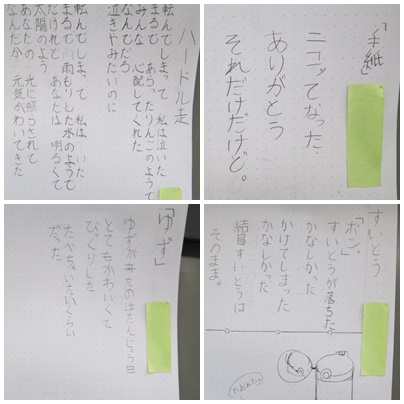 ハードル走
転んでしまって 私は泣いた
まるで あら たりんごのようで
みんな 心配してくれた
なんでだろ
泣きやみたいのに
転んでしまって 私は いた
まるで 雨もりした水のようで
だけれど あなたは 明るくて
太陽のよう
あなたの 光に照らされて
なんだか 元気がわいてきた
「手紙」
ニコッてなった。
ありがとう
それだけだけど。
「ゆず」
ゆずが来たのはたんじょう日
とてもかわいくて
びっくりした
たべちゃいたいくらい
だった
すいとう
「ボン。」
すいとうが落ちた
かなしかった
かけてしまった
かなしかった
結局すいとうは
そのまま。